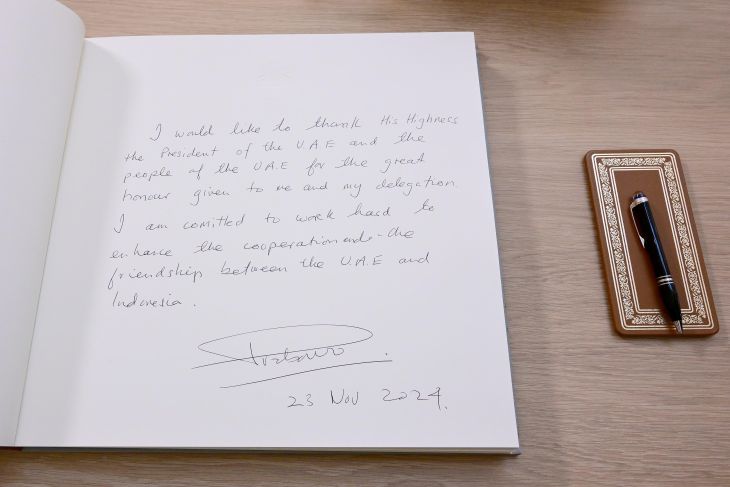 I would like to thank His Highness
the President of the U.A.E and the
people of the U.A.E for the great
honour given to me and my delegation.
I am comitted to work hard to
enhance the cooperation and the
friendship between the U.A.E and
Indonesia.
Prabowo
23 Nov 2024.